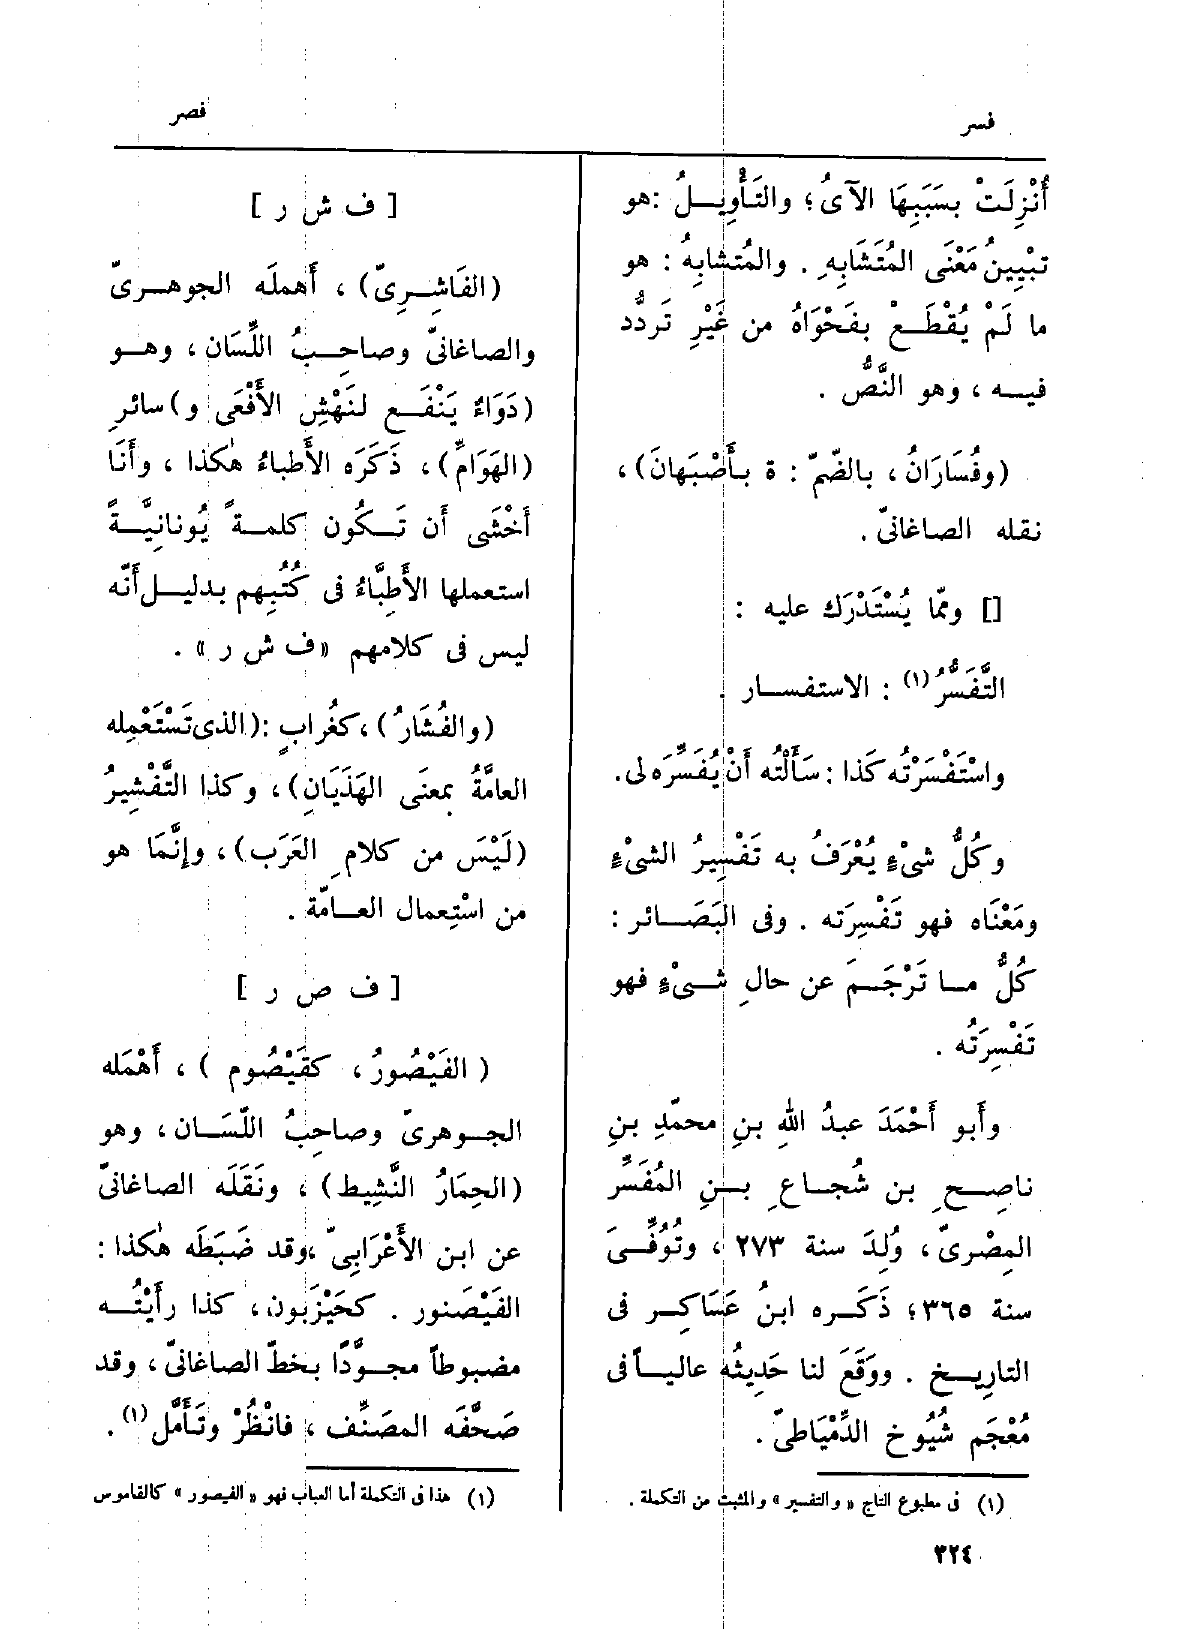 فسر
فصر
أُنْزِلَتْ بسَبَبِهَا الآىُ؛ والتَأْوِيلُ : هو
تبْيِينُ مَعْنَى المُتَشَابِهِ . والمُتشابِهُ : هو
ما لَمْ يُقْطَعْ بفَحْوَاهُ من غَيْرِ تَردُّد
فيه ، وهو النَّصُّ .
(وفُسَارَانُ ، بالضّمّ : ة بأَصْبَهانَ) ،
نقله الصاغانىّ .
[] وممّا يُسْتَدْرَك عليه :
التَّفَسُّرُ (١) : الاستفسار .
واسْتَفْسَرْته كَذا : سَأَلْتُه أَنْ يُفَسِّرَه لى .
وكُلُّ شىْءٍ يُعْرَفُ به تَفْسِيرُ الشىْءِ
ومَعْنَاه فهو تَفْسِرَته . وفى البَصَائر :
كُلُّ ما تَرْجَمَ عن حالِ شىْءٍ فهو
تَفْسِرَتُه .
وأَبو أَحْمَدَ عبدُ اللهِ بنِ محمّدِ بنِ
ناصِحِ بن شُجاعِ بنِ المُفَسِّر
المِصْرىّ ، وُلِدَ سنة ٢٧٣ ، وتُوُفِّىَ
سنة ٣٦٥؛ ذَكَره ابنُ عَسَاكِر فى
التاريخ . ووَقَعَ لنا حَدِيثُه عالياً فى
مُعْجَم شُيُوخ الدِّمْيَاطىّ .
(١) فى مطبوع التاج « والتفسير » والمثبت من التكملة .
[ ف ش ر ]
(الفَاشِرِىّ) ، أَهملَه الجوهرىّ
والصاغانىّ وصاحِبُ اللِّسَان ، وهو
(دَوَاءٌ يَنْفَع لنَهْشِ الأَفْعَى و) سائرِ
(الهَوَامِّ) ، ذَكَرَه الأَطباءُ هٰكذا ، وأَنَا
أَخْشَى أَن تَكُون كلمةً يُونانيَّةً
استعملها الأَطِبَّاءُ فى كُتُبِهم بدليل أَنّه
ليس فى كلامهم « ف ش ر » .
(والفُشَارُ) ، كغُرابٍ : (الذى تَسْتَعْمِله
العامَّةُ بمعنَى الهَذَيَانِ) ، وكذا التَّفْشِيرُ
(لَيْسَ من كلامِ العَرَب) ، وإِنَّمَا هو
من اسْتِعمال العامّة .
[ ف ص ر ]
( الفَيْصُورُ ، كقَيْصُوم ) ، أَهْمَله
الجوهرىّ وصاحِبُ اللّسَان ، وهو
(الحِمَارُ النَّشِيط) ، ونَقَلَه الصاغانىّ
عن ابن الأَعْرَابىّ ، وقد ضَبَطَه هٰكذا :
الفَيْصَنور . كحَيْزَبون ، كذا رأَيْتُه
مضبوطاً مجوَّدًا بخطّ الصاغانىّ ، وقد
صَحَّفَه المصَنِّف ، فانْظُرْ وتَأَمَّل (١) .
(١) هذا فى التكملة أما العباب فهو « الفيصور » كالقاموس
٣٢٤